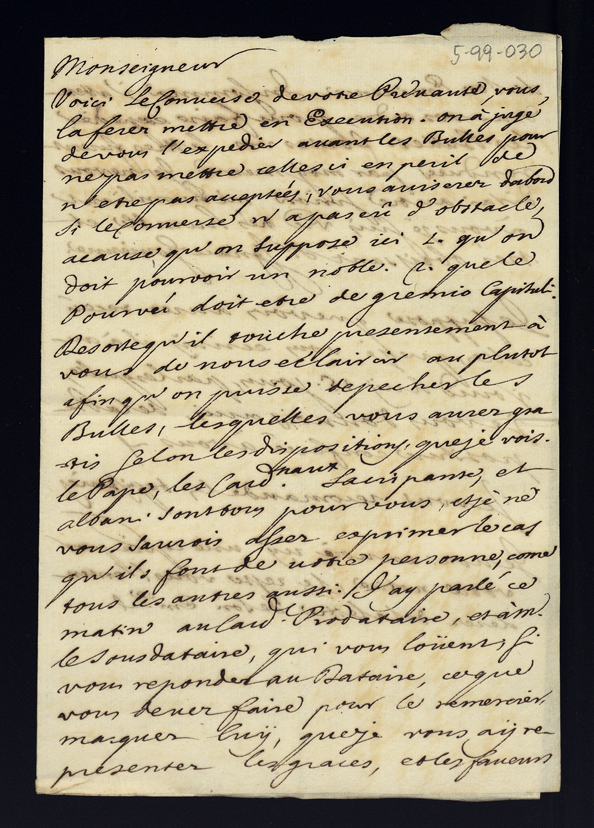 5-99-030
Monseigneur
Voici le Converso de votre Prevauté, vous
la ferez mettre en Execution. on à jugé
de vous l'expedier avant les Bulles pour
ne pas mettre celles ci en peril de
n etre pas acceptés; vous aviserez d'abord
si le Converse n'a pas eû d'obstacle,
acause qu'on suppose ici 1. qu'on
doit pourvoir un noble. 2. que le
Pourvéu doit etre de gremio Capituli.
Desorte qu'il touche presentement à
vous de nous eclaircir au plutot
afin qu'on puisse depecher les
Bulles, lesquelles vous aurez gra
tis selon les dispositions, que je vois.
le Pape, les Cardnaux Sacripante, et
albani sont tous pour vous, et je ne
vous saurois assez exprimer le cas
qu'ils font de votre personne, come
tous les autres aussi. J'ay parlé ce
matin au Card. Prodataire, et à m.
le Sousdataire, qui vous loüent; si
vous reponder au Dataire, ce que
vous dever faire pour le remercier
marquer luÿ, que je vous aÿ re-
presenter les graces, et les faveurs